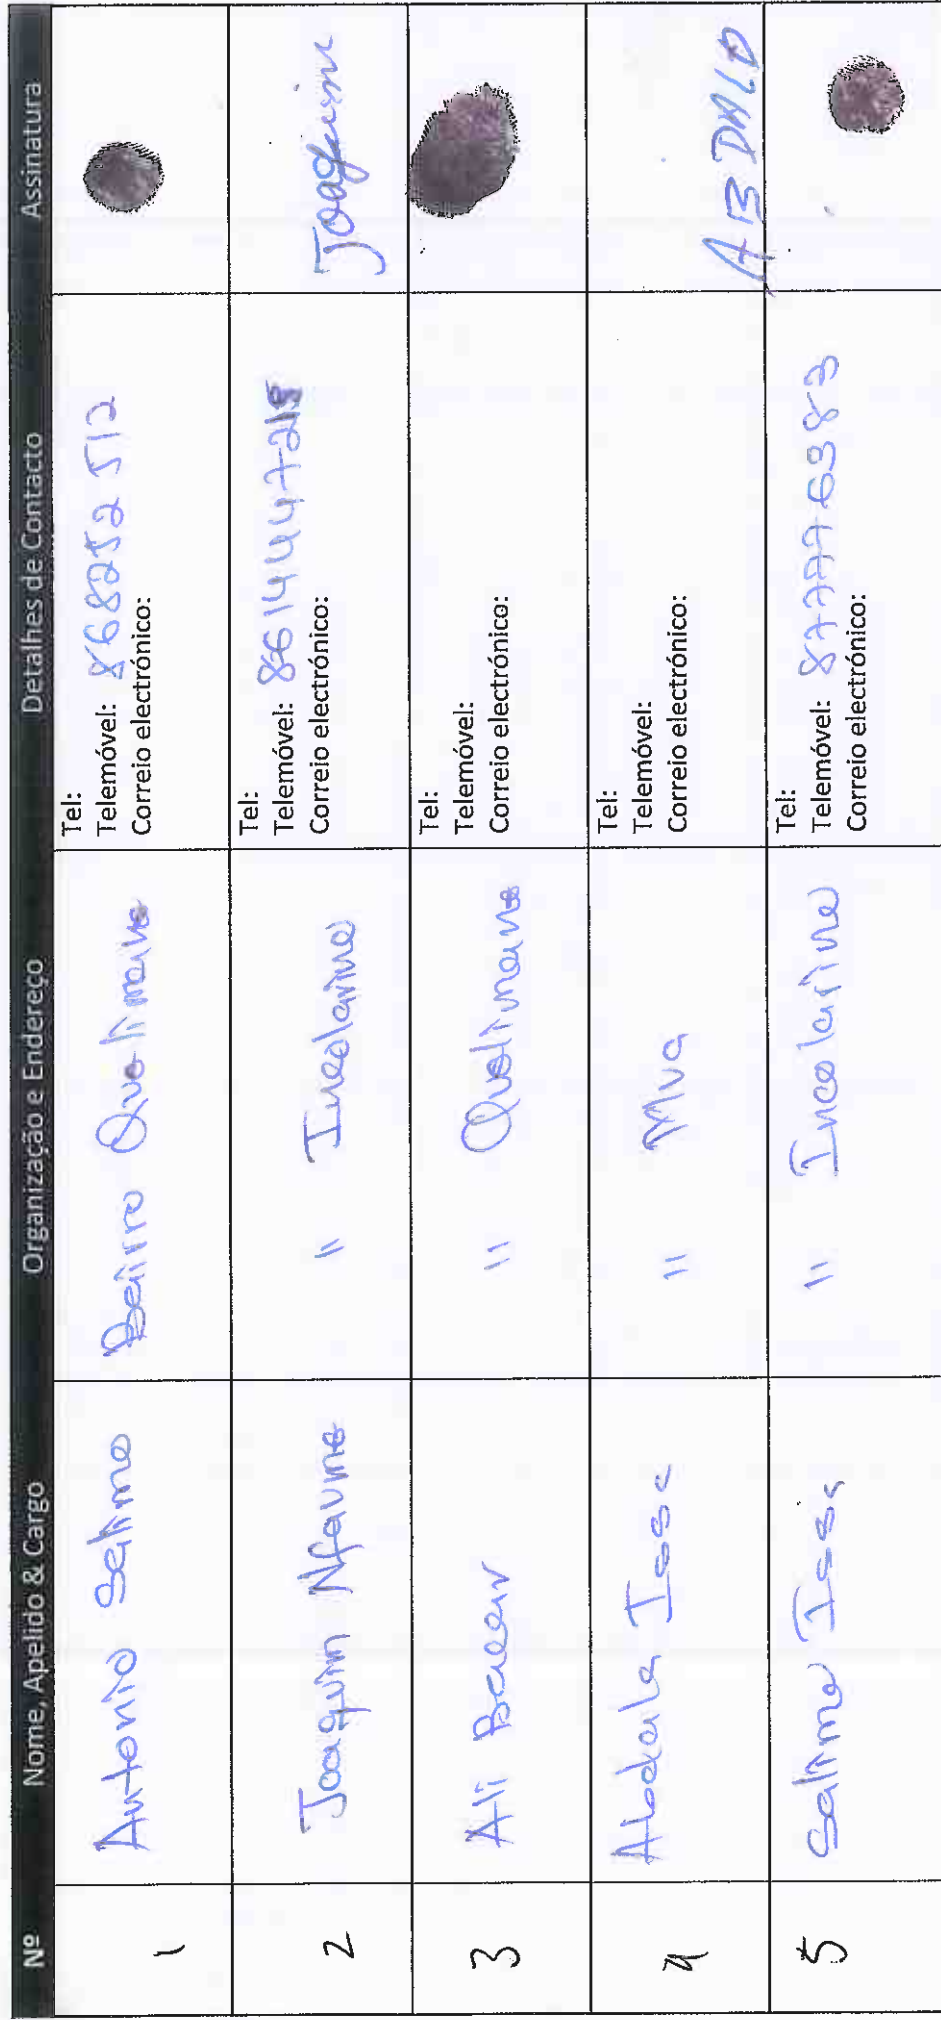 Nº Nome, Apelido & Cargo Organização e Endereço Detalhes de Contacto Assinatura
1 Antonio Salimo Bairro Quelimane
Tel:
Telemóvel: 868252512
Correio electrónico:
2 Joaquim Nfaume " Incolarine Joaquim
Tel:
Telemóvel: 8614447218
Correio electrónico:
3 Ali " Quelimane
Tel:
Telemóvel:
Correio electrónico:
4 Abdala Issa " Mua ABDALD
Tel:
Telemóvel:
Correio electrónico:
5 Salimo Issa " Incolarine
Tel:
Telemóvel: 877776383
Correio electrónico: